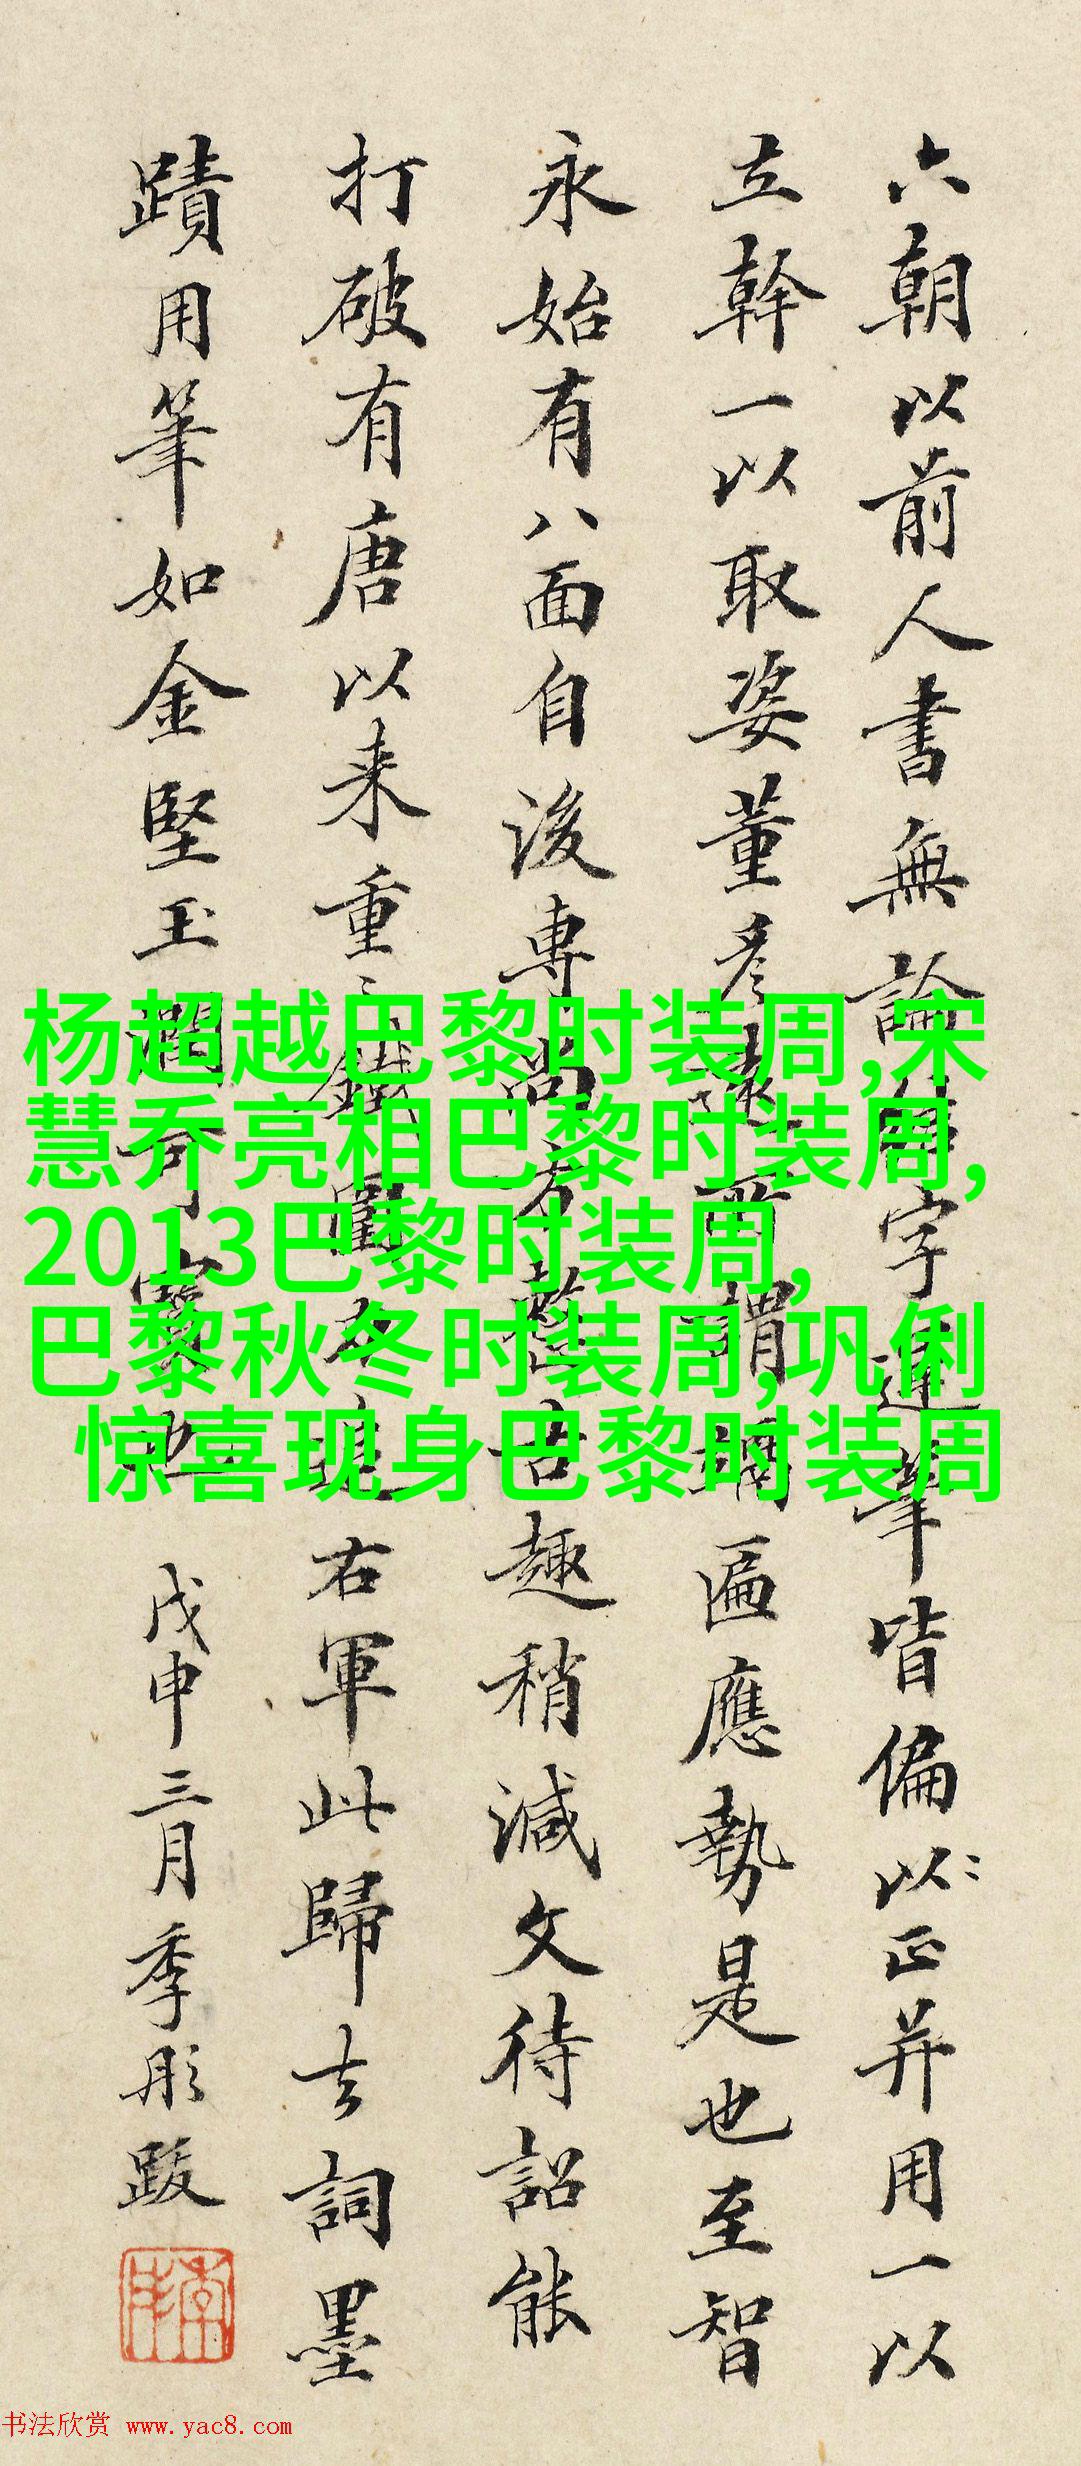 六朝以前人書無論字運筆皆偏以正并用一以
立幹一以取姿董彦遠所謂遍應勢是也至智
永始有八面自後專尚方整古趣稍減文待詔能
打破有唐以来重右軍此歸去詞墨
蹟用筆如金堅玉潤可寶也 戊申三月季彤跋
杨超越巴黎时装周,宋
慧乔亮相巴黎时装周,
2013巴黎时装周,
巴黎秋冬时装周,巩俐
惊喜现身巴黎时装周
书法欣赏 www.yac8.com